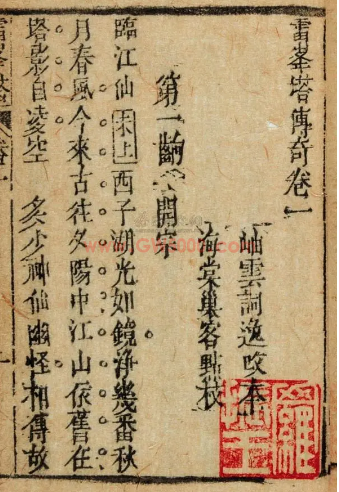 雷峯塔傳奇卷一
岫雲詞逸改本
海棠巢客點校
第一齣 開宗
臨江仙 末上 西子湖光如鏡淨幾番秋
月春風今來古往夕陽中江山依舊在
塔影自凌空 多少神仙幽怪相傳故